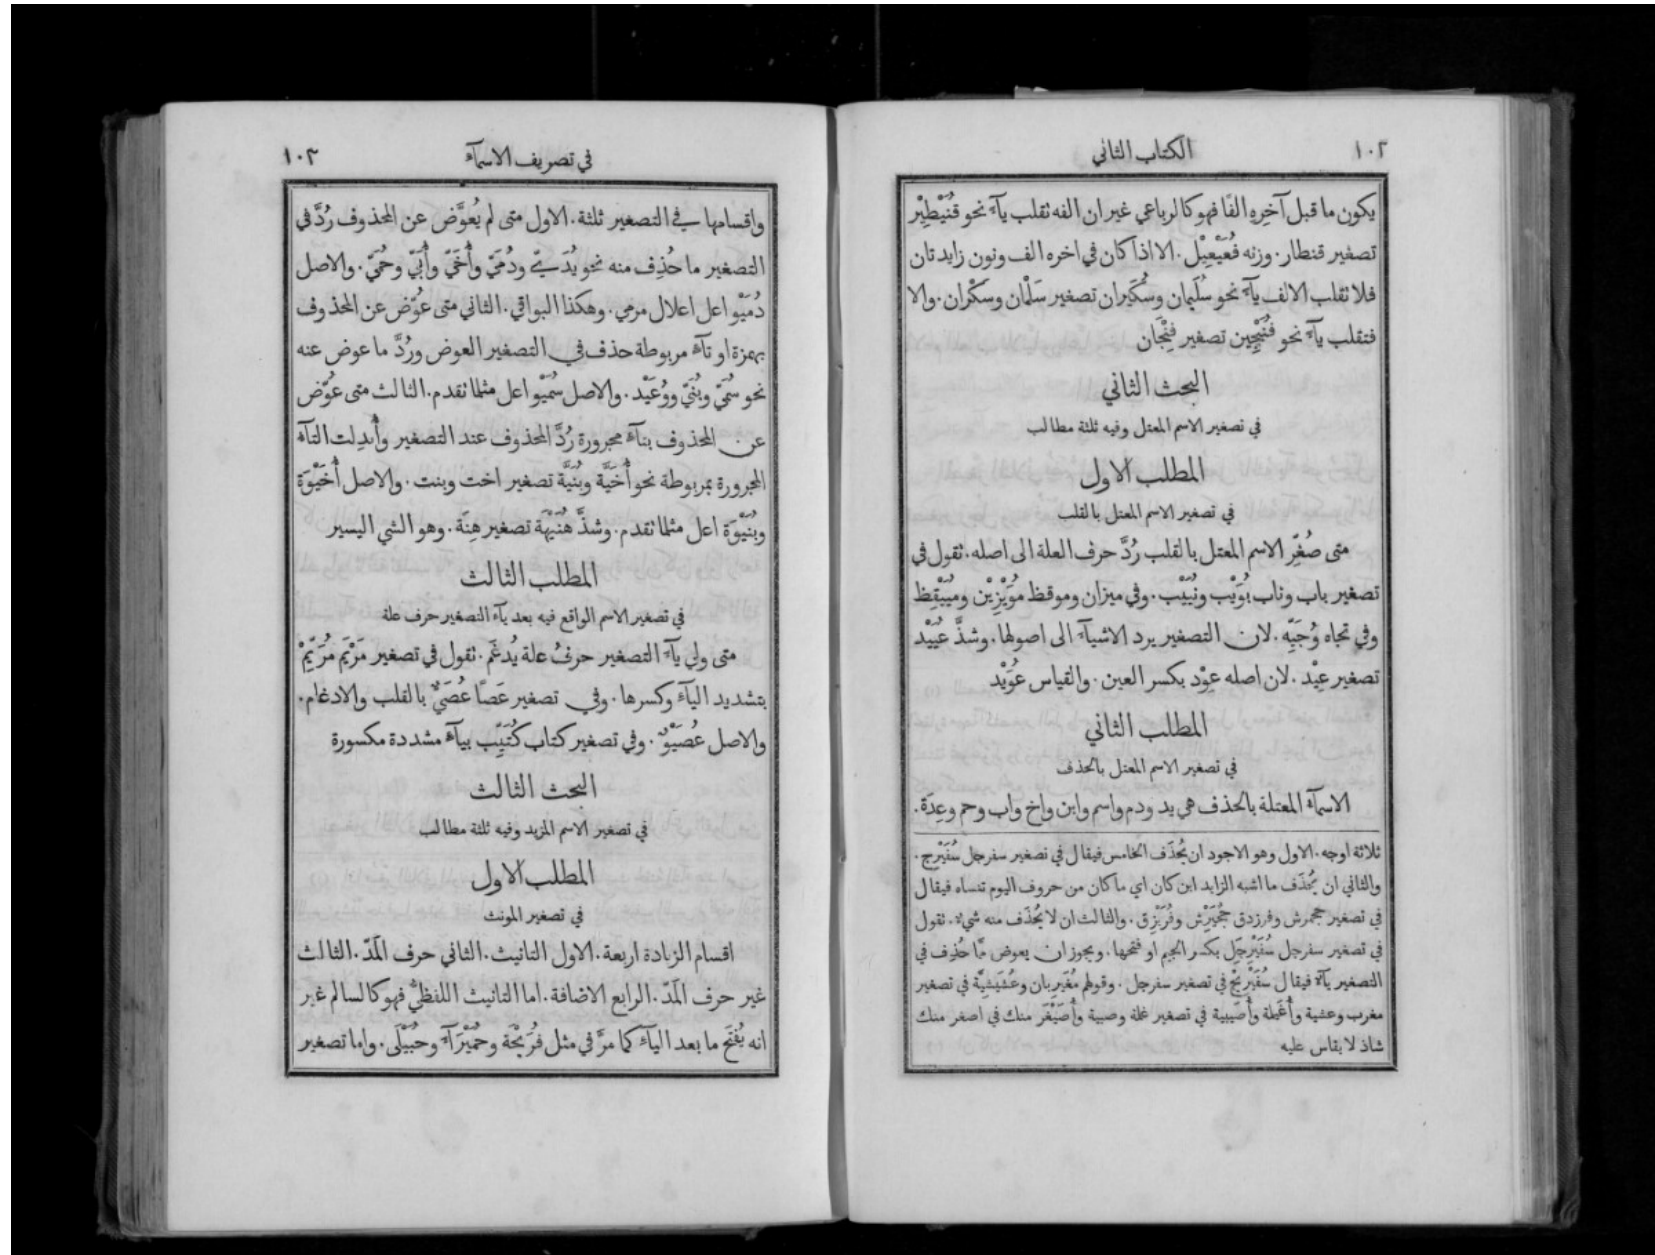 ١٠٢
الكتاب الثاني
يكون ما قبل آخِرِهِ الفًا فهو كالرباعي غير ان الفه تقلب يآءً نحو قُنَيْطِيْر
تصغير قنطار. وزنه فُعَيْعِيْل. الا اذا كان في اخره الف ونون زايدتان
فلا تقلب الالف يآءً نحو سُلَيمان وسُكَيران تصغير سَلْمان وسكْران. والا
فتقلب يآءً نحو فُنَيْجِين تصغير فِنْجَان
البحث الثاني
في تصغير الاسم المعتل وفيه ثلثة مطالب
المطلب الاول
في تصغير الاسم المعتل بالقلب
متى صُغِّر الاسم المعتل بالقلب رُدَّ حرف العلة الى اصله. تقول في
تصغير باب وناب بُوَيْب ونُيَيْب. وفي ميزان وموقظ مُوَيْزِيْن ومُيَيْقِظ
وفي تجاه وُجَيِّه. لان التصغير يرد الاشيآء الى اصولها. وشذَّ عُيَيْد
تصغير عِيْد. لان اصله عِوْد بكسر العين. والقياس عُوَيْد
المطلب الثاني
في تصغير الاسم المعتل بالحذف
الاسمآء المعتلة بالحذف هي يد ودم واسم وابن واخ واب وحم وعِدَة.
ثلاثة اوجه. الاول وهو الاجود ان يُحذَف الخامس فيقال في تصغير سفرجل سُفَيْرِج.
والثاني ان يُحذَف ما اشبه الزايد ابن كان اي ما كان من حروف اليوم تنساه فيقال
في تصغير جحمرش وفرزدق جُحَيْرِش وفُرَيْزِق. والثالث ان لا يُحذَف منه شيءٌ. تقول
في تصغير سفرجل سُفَيْرِجَِل بكسر الجيم او فتحها. ويجوز ان يعوض مِمَّا حُذِف في
التصغير يآءً فيقال سُفَيْرِيْج في تصغير سفرجل. وقولهم مُغَيرِبان وعُشَيشِيَّة في تصغير
مغرب وعشية وأُغَيلمة وأُصَيبية في تصغير غلمة وصبية وأُصَيْغَر منك في اصغر منك
شاذ لا يقاس عليه
في تصريف الاسمآء
١٠٣
واقسامها في التصغير ثلثة. الاول متى لم يُعوَّض عن المحذوف رُدَّ في
التصغير ما حُذِف منه نحو يُدَيّ ودُمَيّ وأُخَيّ وأُبَيّ وحُمَيّ. والاصل
دُمَيْو اعل اعلال مرمي. وهكذا البواقي. الثاني متى عُوِّض عن المحذوف
بهمزة او تآء مربوطة حذف في التصغير العوض ورُدَّ ما عوض عنه
نحو سُمَيّ وبُنَيّ ووُعَيْد. والاصل سُمَيْو اعل مثلما تقدم. الثالث متى عُوِّض
عن المحذوف بتآء مجرورة رُدَّ المحذوف عند التصغير وأُبدِلت التآء
المجرورة بمربوطة نحو أُخَيَّة وبُنَيَّة تصغير اخت وبنت. والاصل أُخَيْوَة
وبُنَيْوَة اعل مثلما تقدم. وشذَّ هُنَيْهَة تصغير هِنَة. وهو الشي اليسير
المطلب الثالث
في تصغير الاسم الواقع فيه بعد يآء التصغير حرف علة
متى ولي يآء التصغير حرفُ علة يُدغَم. تقول في تصغير مَرْيَم مُرَيِّمْ
بتشديد اليآء وكسرها. وفي تصغير عَصًا عُصَيٌّ بالقلب والادغام.
والاصل عُصَيْوٌ. وفي تصغير كتاب كُتَيِّب بيآء مشددة مكسورة
البحث الثالث
في تصغير الاسم المزيد وفيه ثلثة مطالب
المطلب الاول
في تصغير المونث
اقسام الزيادة اربعة. الاول التانيث. الثاني حرف المَدّ. الثالث
غير حرف المَدّ. الرابع الاضافة. اما التانيث اللفظيُّ فهو كالسالم غير
انه يُفتَح ما بعد اليآء كما مرَّ في مثل فُرَيْحَة وحُمَيْرَآء وحُبَيْلَى. واما تصغير